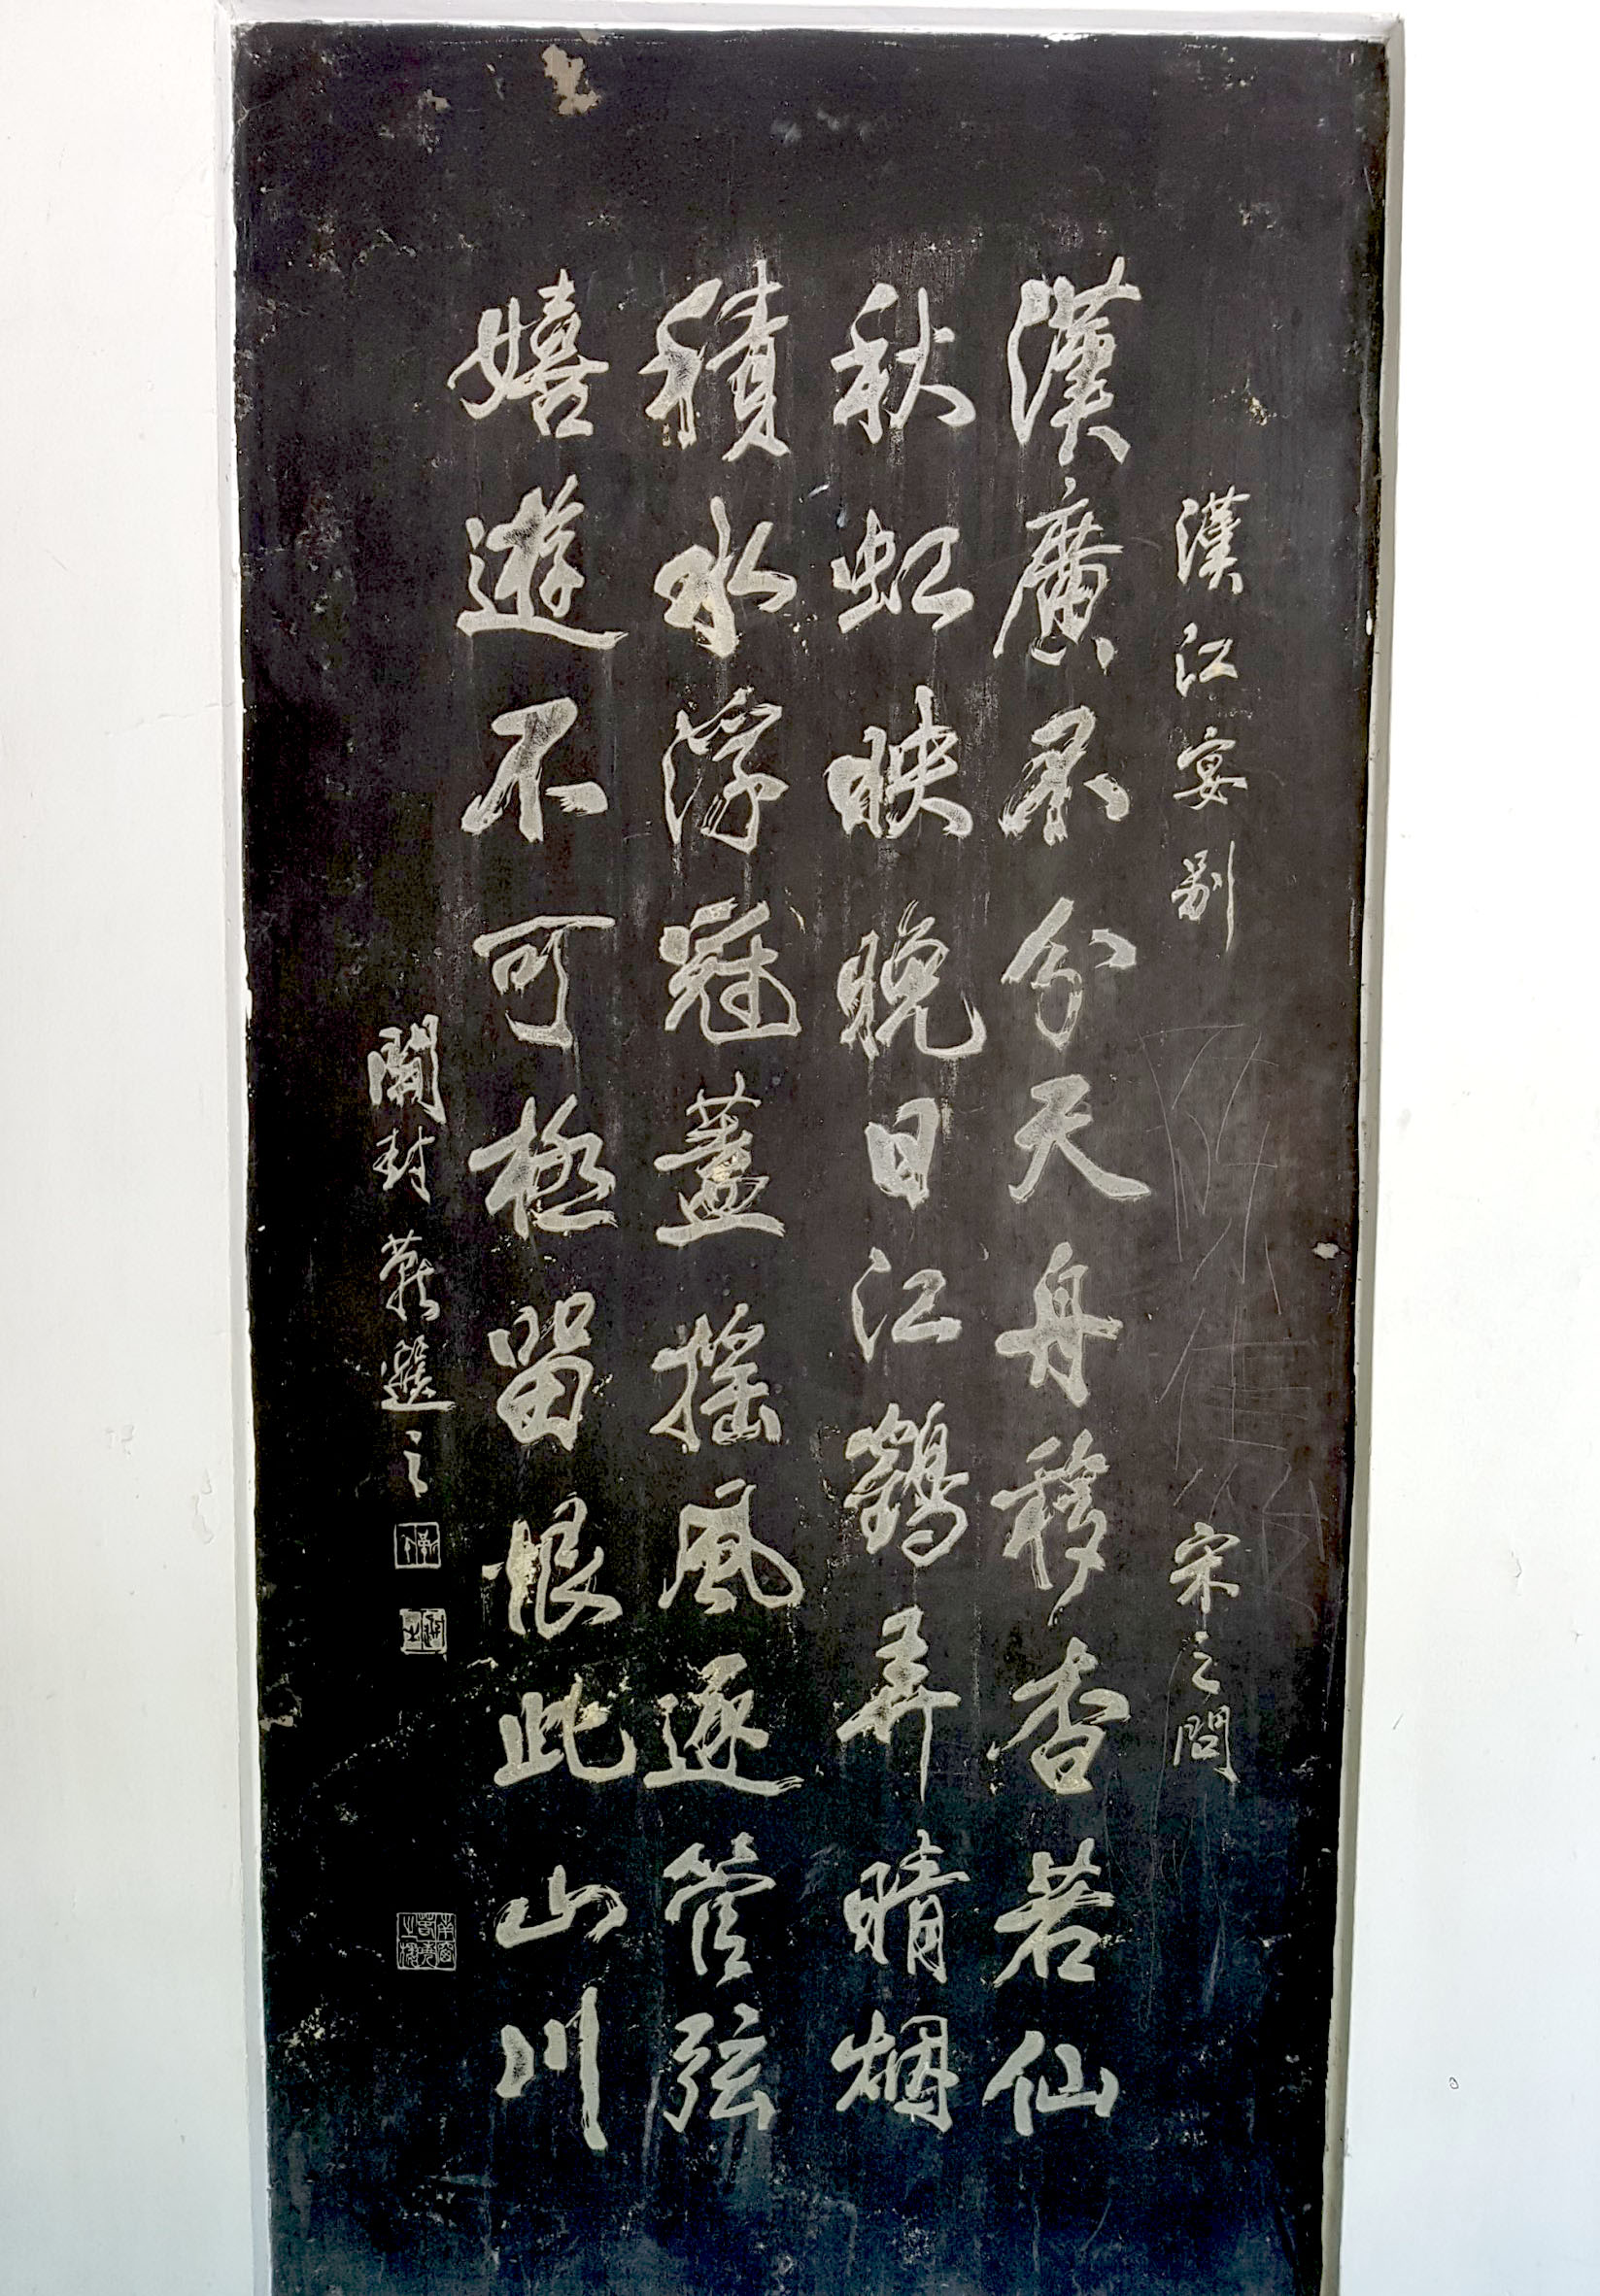 漢江宴别 宋之問
漢廣不分天舟移杳若仙
秋虹映晚日江鶴弄晴烟
積水浮冠蓋摇風逐管弦
嬉遊不可極留恨此山川
開封 靳選之